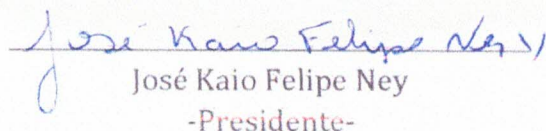 José Kaio Felipe Ney
José Kaio Felipe Ney
-Presidente-